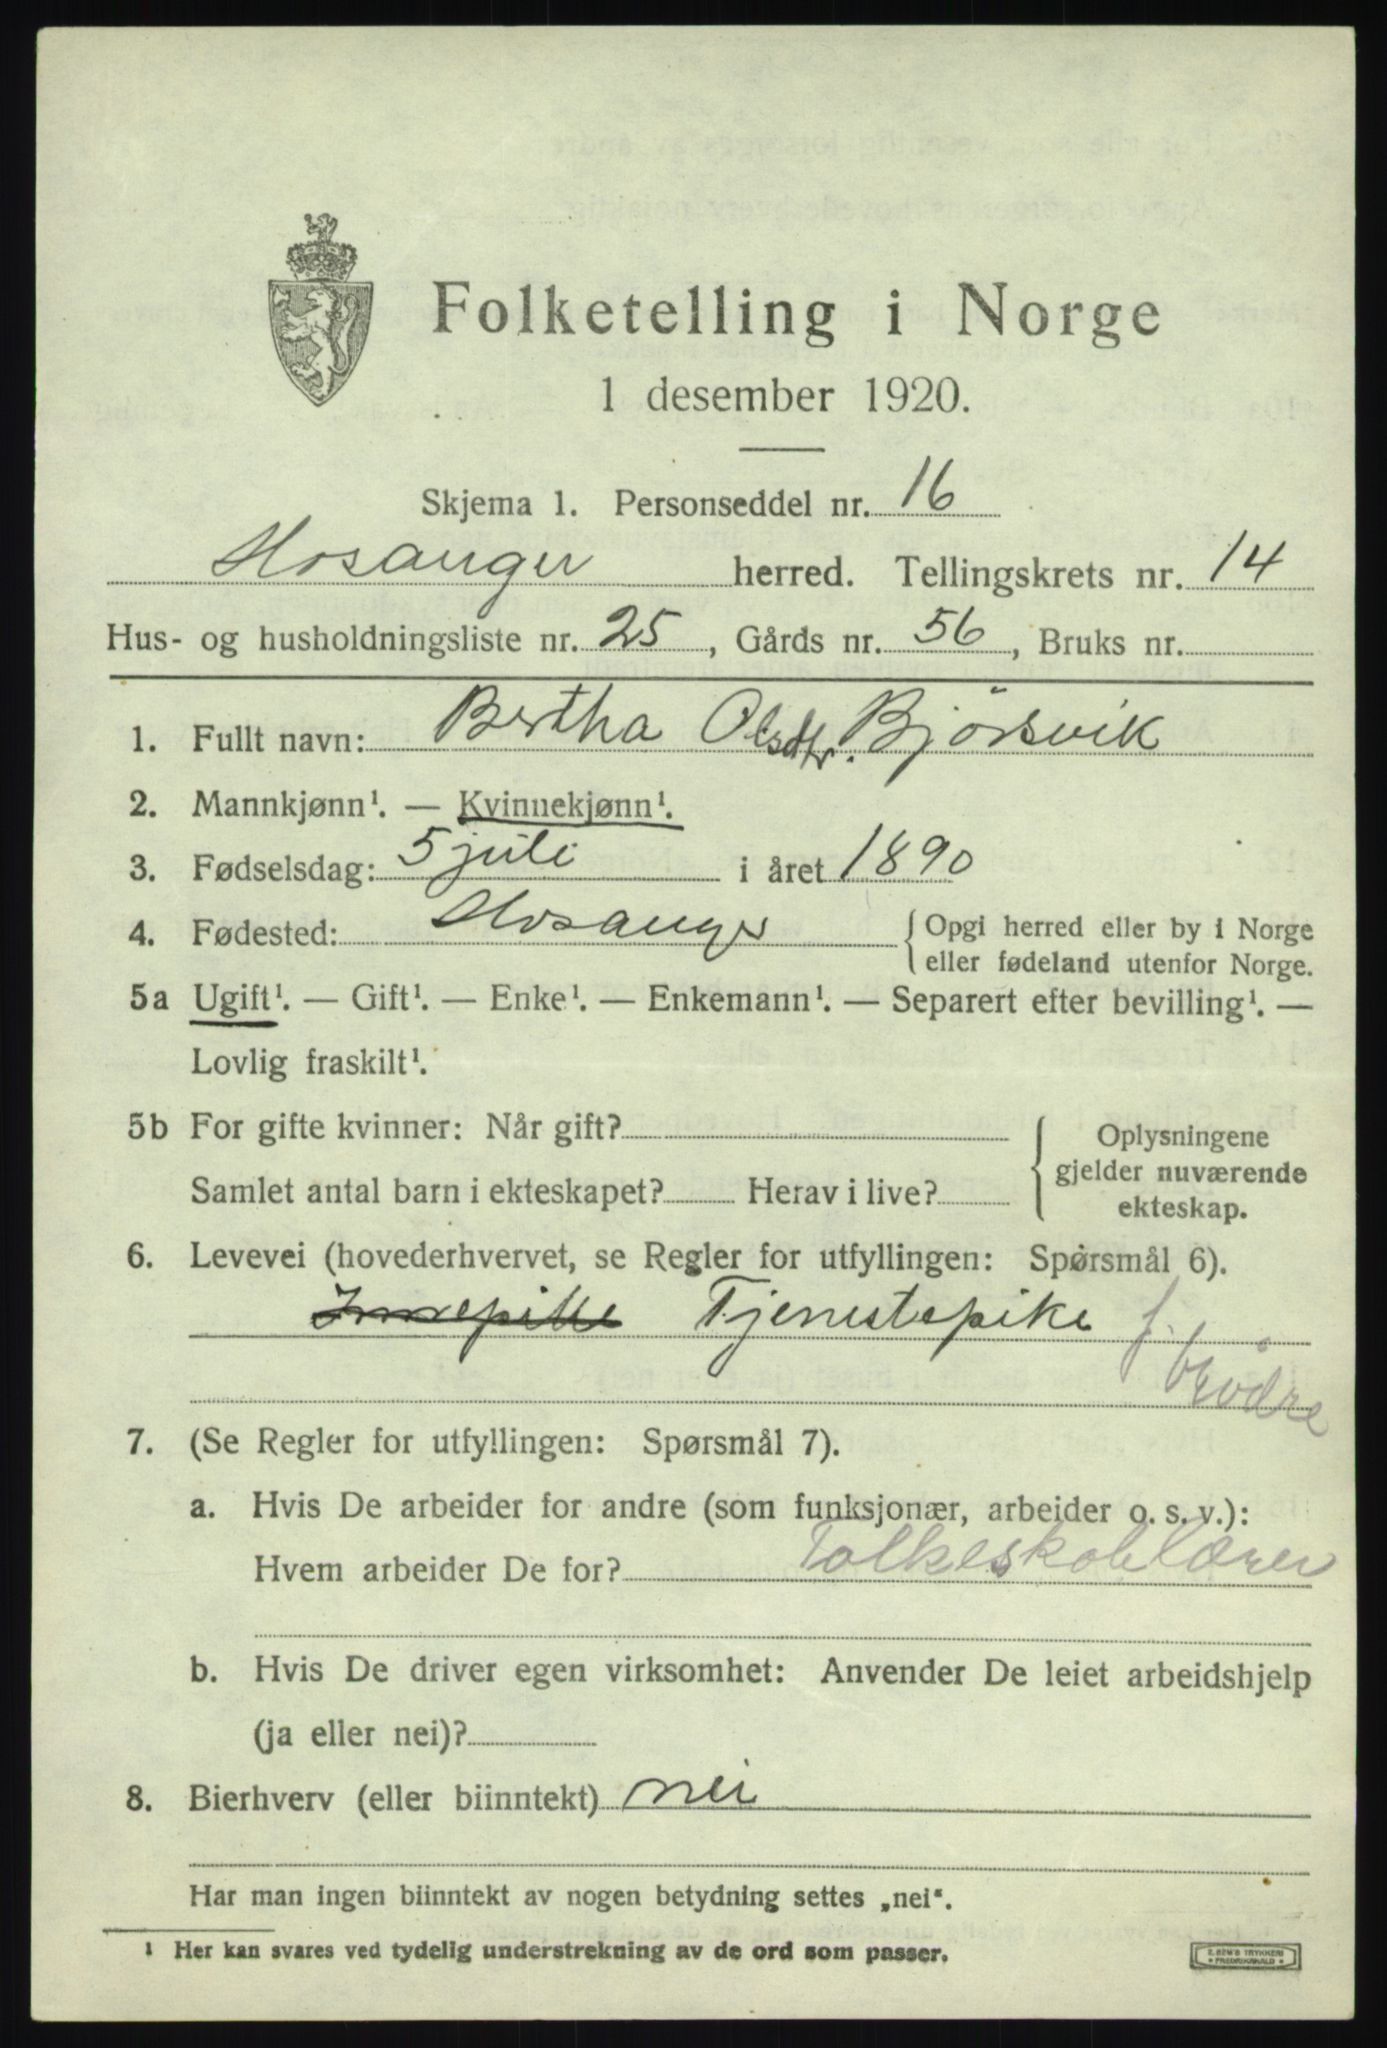 Folketelling i Norge
1 desember 1920.
Skjema 1. Personseddel nr. 16
Hosanger herred. Tellingskrets nr. 14
Hus- og husholdningsliste nr. 25, Gårds nr. 56, Bruks nr.
1. Fullt navn: Bertha Olsdtr. Bjørsvik
2. Mannkjønn¹. — Kvinnekjønn¹.
3. Fødselsdag: 5 juli i året 1890
4. Fødested: Hosanger { Opgi herred eller by i Norge
eller fødeland utenfor Norge.
5a Ugift¹. — Gift¹. — Enke¹. — Enkemann¹. — Separert efter bevilling¹. —
Lovlig fraskilt¹.
5b For gifte kvinner: Når gift?
Samlet antal barn i ekteskapet? Herav i live?
Oplysningene
gjelder nuværende
ekteskap.
6. Levevei (hovederhvervet, se Regler for utfyllingen: Spørsmål 6).
Tjenestepike f.
7. (Se Regler for utfyllingen: Spørsmål 7).
a. Hvis De arbeider for andre (som funksjonær, arbeider o. s. v.):
Hvem arbeider De for? Folkeskolelærer
b. Hvis De driver egen virksomhet: Anvender De leiet arbeidshjelp
(ja eller nei)?
8. Bierhverv (eller biinntekt) nei
Har man ingen biinntekt av nogen betydning settes „nei“.
¹ Her kan svares ved tydelig understrekning av de ord som passer.